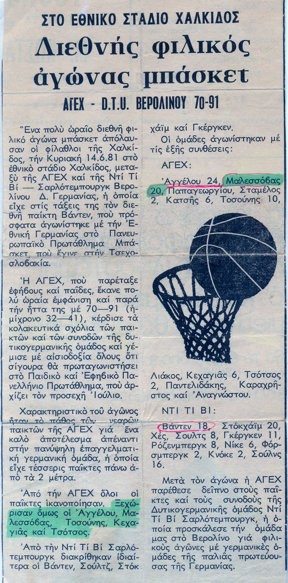 ΣΤΟ ΕΘΝΙΚΟ ΣΤΑΔΙΟ ΧΑΛΚΙΔΟΣ
Διεθνής φιλικός
ἀγώνας μπάσκετ
ΑΓΕΧ - D.T.U. ΒΕΡΟΛΙΝΟΥ 70-91
Ἕνα πολύ ὡραῖο διεθνῆ φι-
λικό ἀγώνα μπάσκετ ἀπόλαυ-
σαν οἱ φίλαθλοι τῆς Χαλκί-
δος, τήν Κυριακή 14.6.81 στό
ἐθνικό στάδιο Χαλκίδος, μετα-
ξύ τῆς ΑΓΕΧ καί τῆς Ντί Τί
Βί — Σαρλότεμπουργκ Βερο-
λίνου Δ. Γερμανίας, ἡ ὁποία
εἶχε στίς τάξεις της τόν διε-
θνῆ παίκτη Βάντεν, πού πρό-
σφατα ἀγωνίστηκε μέ τήν Ἐ-
θνική Γερμανίας στό Πανευ-
ρωπαϊκό Πρωτάθλημα Μπά-
σκετ, πού ἔγινε στήν Τσεχο-
σλοβακία.
Ἡ ΑΓΕΧ, πού παρέταξε
ἐφήβους καί παῖδες, ἔκανε πο-
λύ ὡραία ἐμφάνιση καί παρά
τήν ἥττα της μέ 70—91 (ἡ-
μίχρονο 32—41), κέρδισε τά
κολακευτικά σχόλια τῶν παι-
κτῶν καί τῶν συνοδῶν τῆς δυ-
τικογερμανικῆς ὁμάδος καί γέ-
μισε μέ αἰσιοδοξία ὅλους ὅτι
σίγουρα θά πρωταγωνιστήσει
στό Παιδικό καί Ἐφηβικό Πα-
νελλήνιο Πρωτάθλημα, πού ἀρ-
χίζει τόν προσεχῆ Ἰούλιο.
Χαρακτηριστικό τοῦ ἀγώνος
ἦταν τό πάθος τῶν νεαρῶν
παικτῶν τῆς ΑΓΕΧ γιά ἕνα
καλό ἀποτέλεσμα ἀπέναντι
στήν πανύψηλη ἐπαγγελματι-
κή γερμανική ὁμάδα, ἡ ὁποία
εἶχε τέσσερις παῖκτες πάνω ἀ-
πό τά 2 μέτρα.
Ἀπό τήν ΑΓΕΧ ὅλοι οἱ
παῖκτες ἱκανοποίησαν. Ξεχώ-
ρισαν ὅμως οἱ Ἀγγέλου, Μα-
λεσσόδας, Τοσούνης, Κεχα-
γιᾶς καί Τσότσος.
Ἀπό τήν Ντί Τί Βί Σαρλό-
τεμπουργκ διακρίθηκαν ἰδιαί-
τερα οἱ Βάντεν, Σούλτζ, Στόκ
χάϊμ καί Γκέργκεν.
Οἱ ὁμάδες ἀγωνίστηκαν μέ
τίς ἑξῆς συνθέσεις:
ΑΓΕΧ:
Ἀγγέλου 24, Μαλεσσόδας
20, Παπαγεωργίου, Σταμέλος
2, Κατσῆς 6, Τοσούνης 10,
Λιάκος, Κεχαγιᾶς 6, Τσότσος
2, Παντελιδάκης, Καραχρῆ-
στος καί Ἀναγνώστου.
ΝΤΙ ΤΙ ΒΙ:
Βάντεν 18, Στόκχαϊμ 20,
Χές, Σούλτς 8, Γκέργκεν 11,
Ρόζενμπεργκ 8, Νίκε 6, Φόρ-
σμπεργκ 2, Κνόκε 2, Σούλνς
16.
Μετά τόν ἀγώνα ἡ ΑΓΕΧ
παρέθεσε δεῖπνο στούς παῖ-
κτες καί τούς συνοδούς τῆς
Δυτικογερμανικῆς ὁμάδος Ντί
Τί Βί Σαρλότεμπουργκ, ἡ ὁ-
ποία προσκάλεσε τήν ὁμάδα
μας στό Βερολίνο γιά φιλι-
κούς ἀγῶνες μέ γερμανικές ὁ-
μάδες τῆς παλιᾶς πρωτευού-
σας τῆς Γερμανίας.